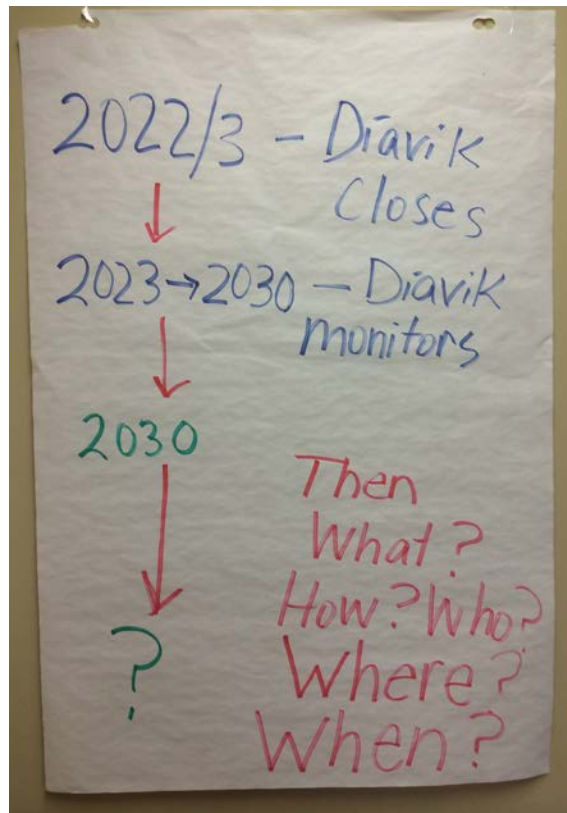 2022/3 – Diavik
Closes
2023→2030 – Diavik
monitors
2030
Then
What?
How? Who?
Where?
When?
?